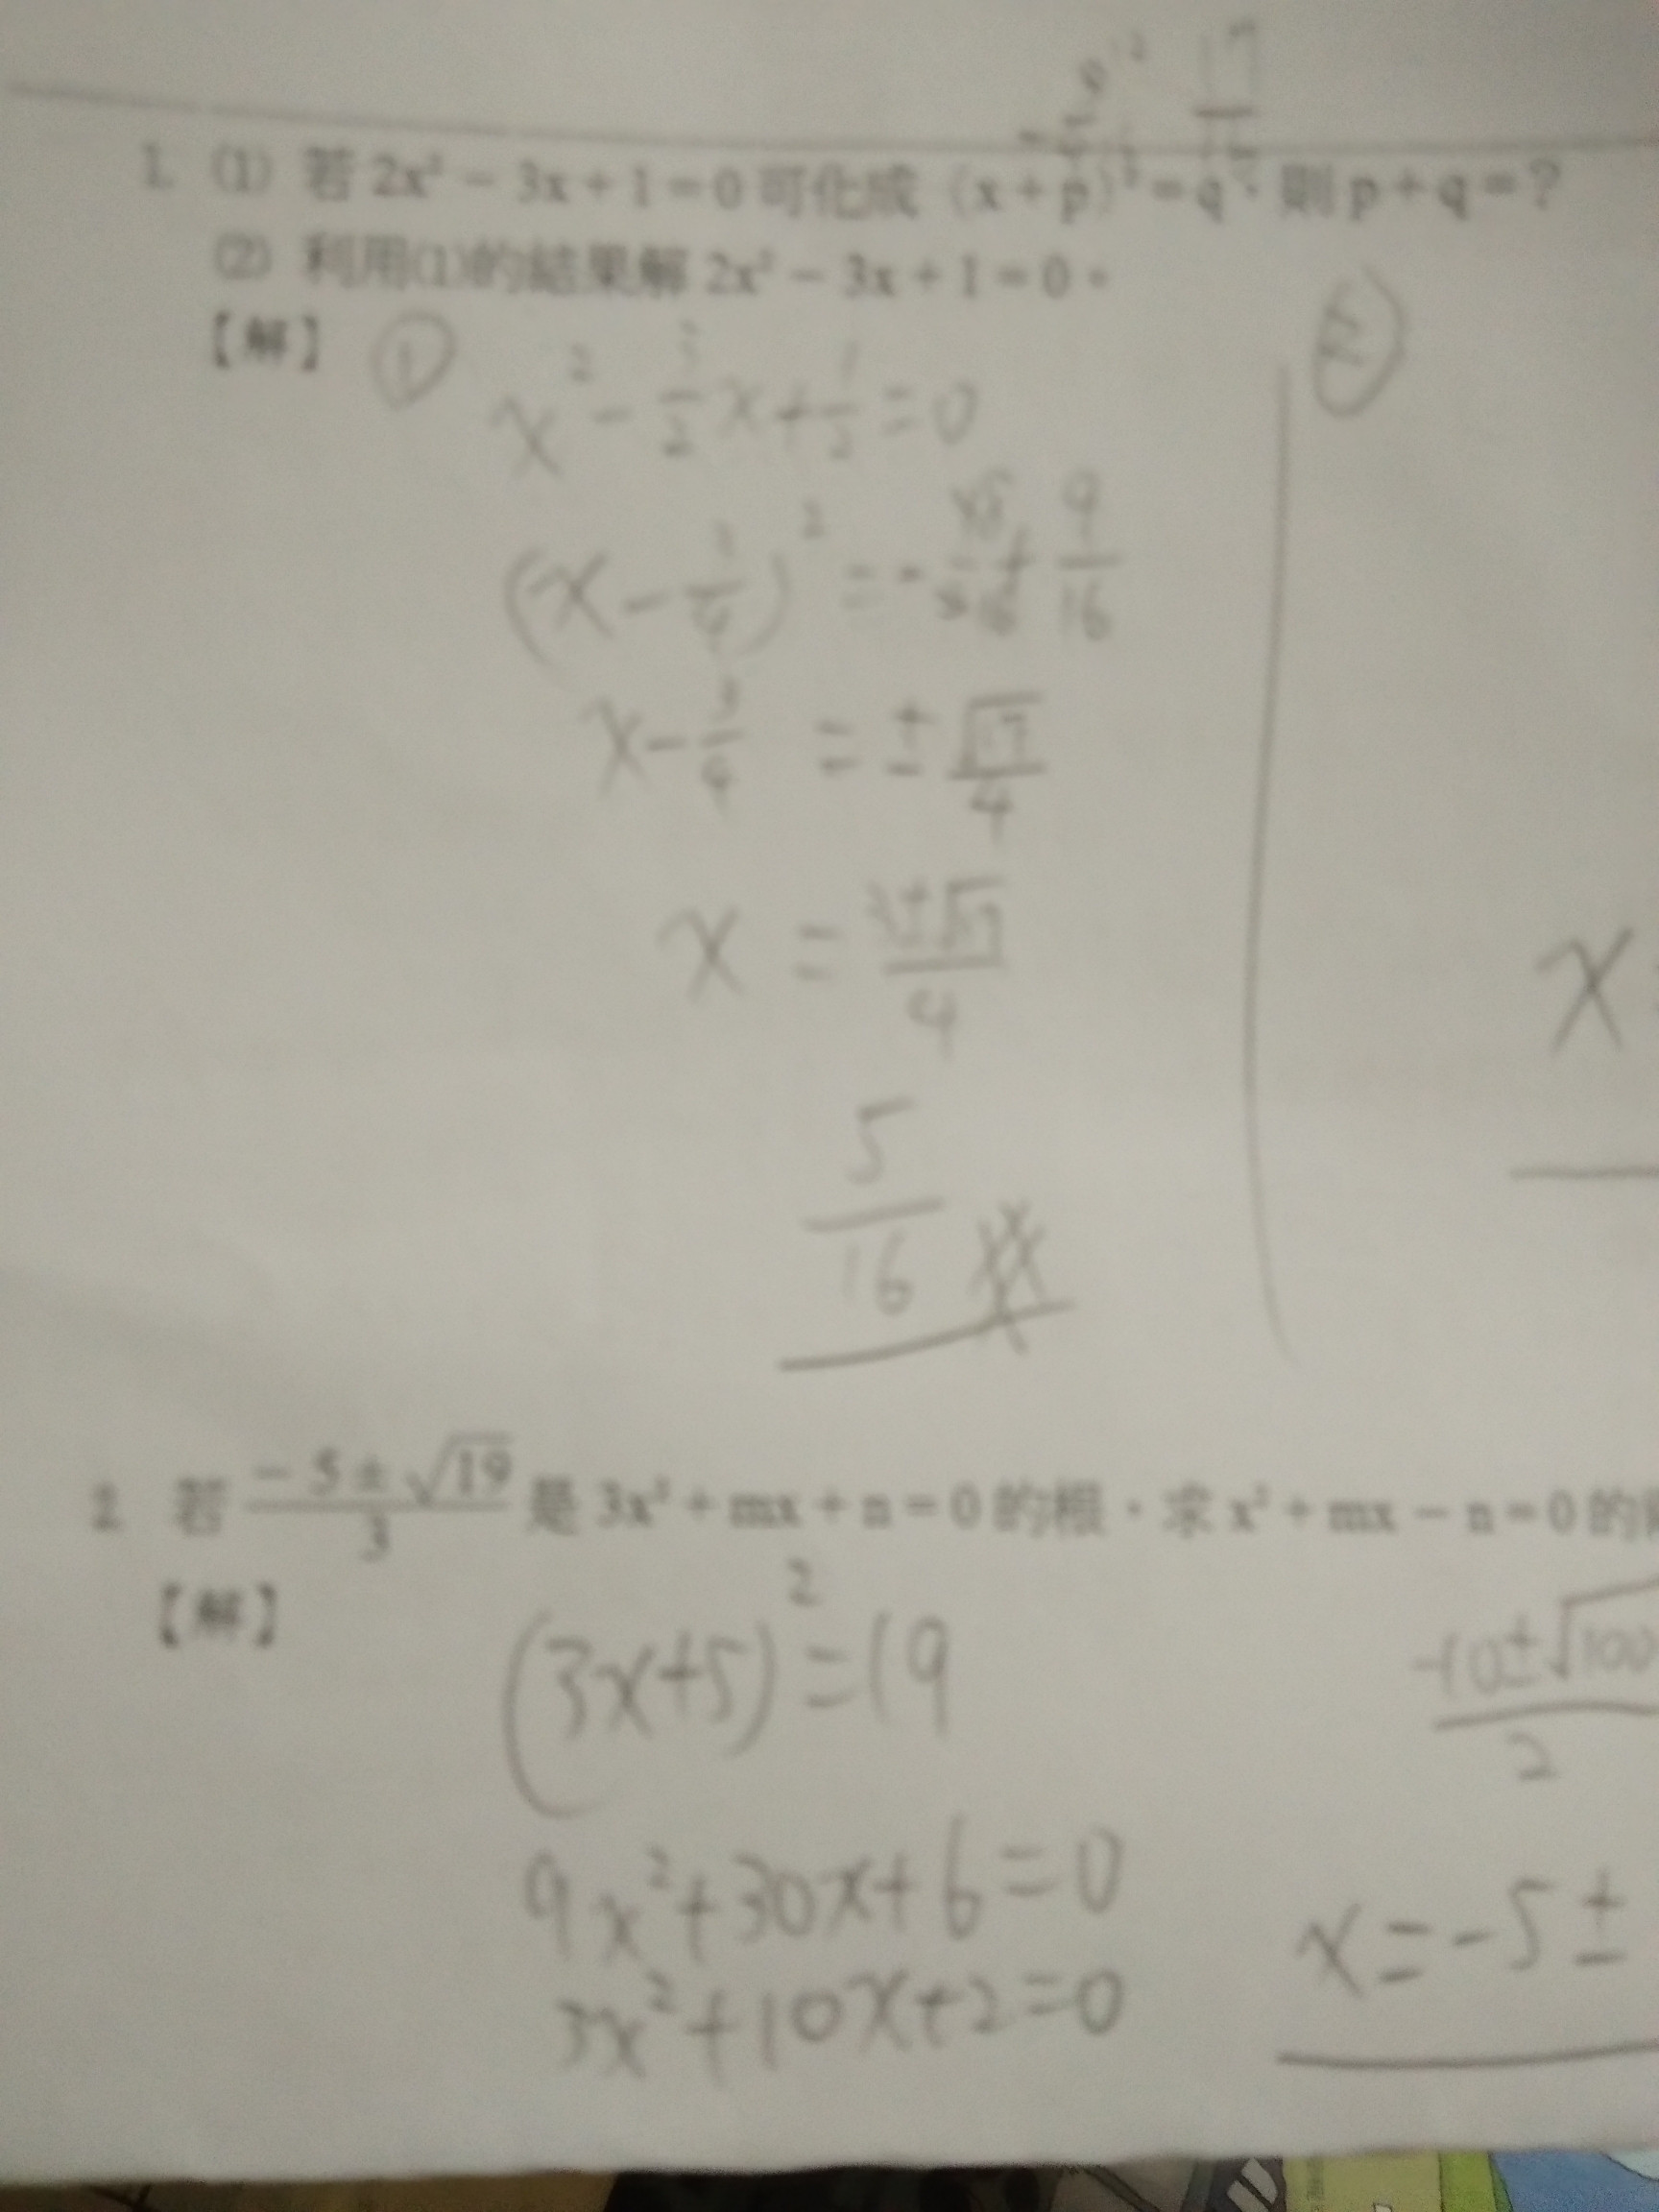 17
1. (1) 若 2x² − 3x + 1 = 0 可化成 (x + p)² = q，則 p + q = ?
(2) 利用(1)的結果解 2x² − 3x + 1 = 0。
【解】 ① x² − 3/2 x + 1/2 = 0
②
(x − 3/4)² = − + 9/16
x − 3/4 = ± √17/4
x = 3±√17/4
x
5/16
2. 若 −5 ± √19/3 是 3x² + mx + n = 0 的根，求 x² + mx − n = 0 的
【解】 (3x+5)² = 19
-10±√100/2
9x² + 30x + 6 = 0
3x² + 10x + 2 = 0
x = -5 ±